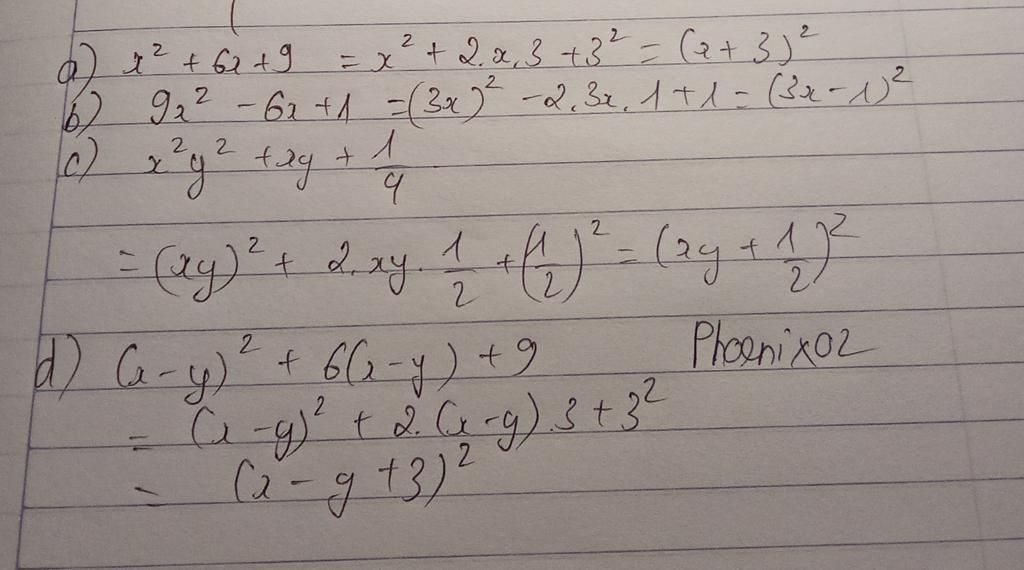 a) x² + 6x + 9 = x² + 2.x.3 + 3² = (x + 3)²
b) 9x² - 6x + 1 = (3x)² - 2.3x.1 + 1 = (3x - 1)²
c) x²y² + xy + 1/4
= (xy)² + 2.xy.1/2 + (1/2)² = (xy + 1/2)²
d) (x - y)² + 6(x - y) + 9 Phoenix02
= (x - y)² + 2.(x - y).3 + 3²
= (x - y + 3)²